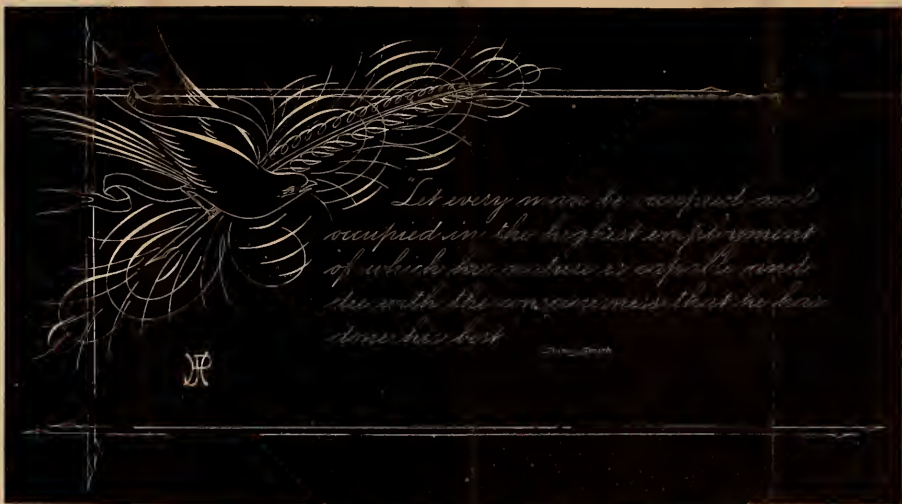 "Let every man be occupied and
occupied in the highest employment
of which his nature is capable and
die with the consciousness that he has
done his best
Sidney Smith